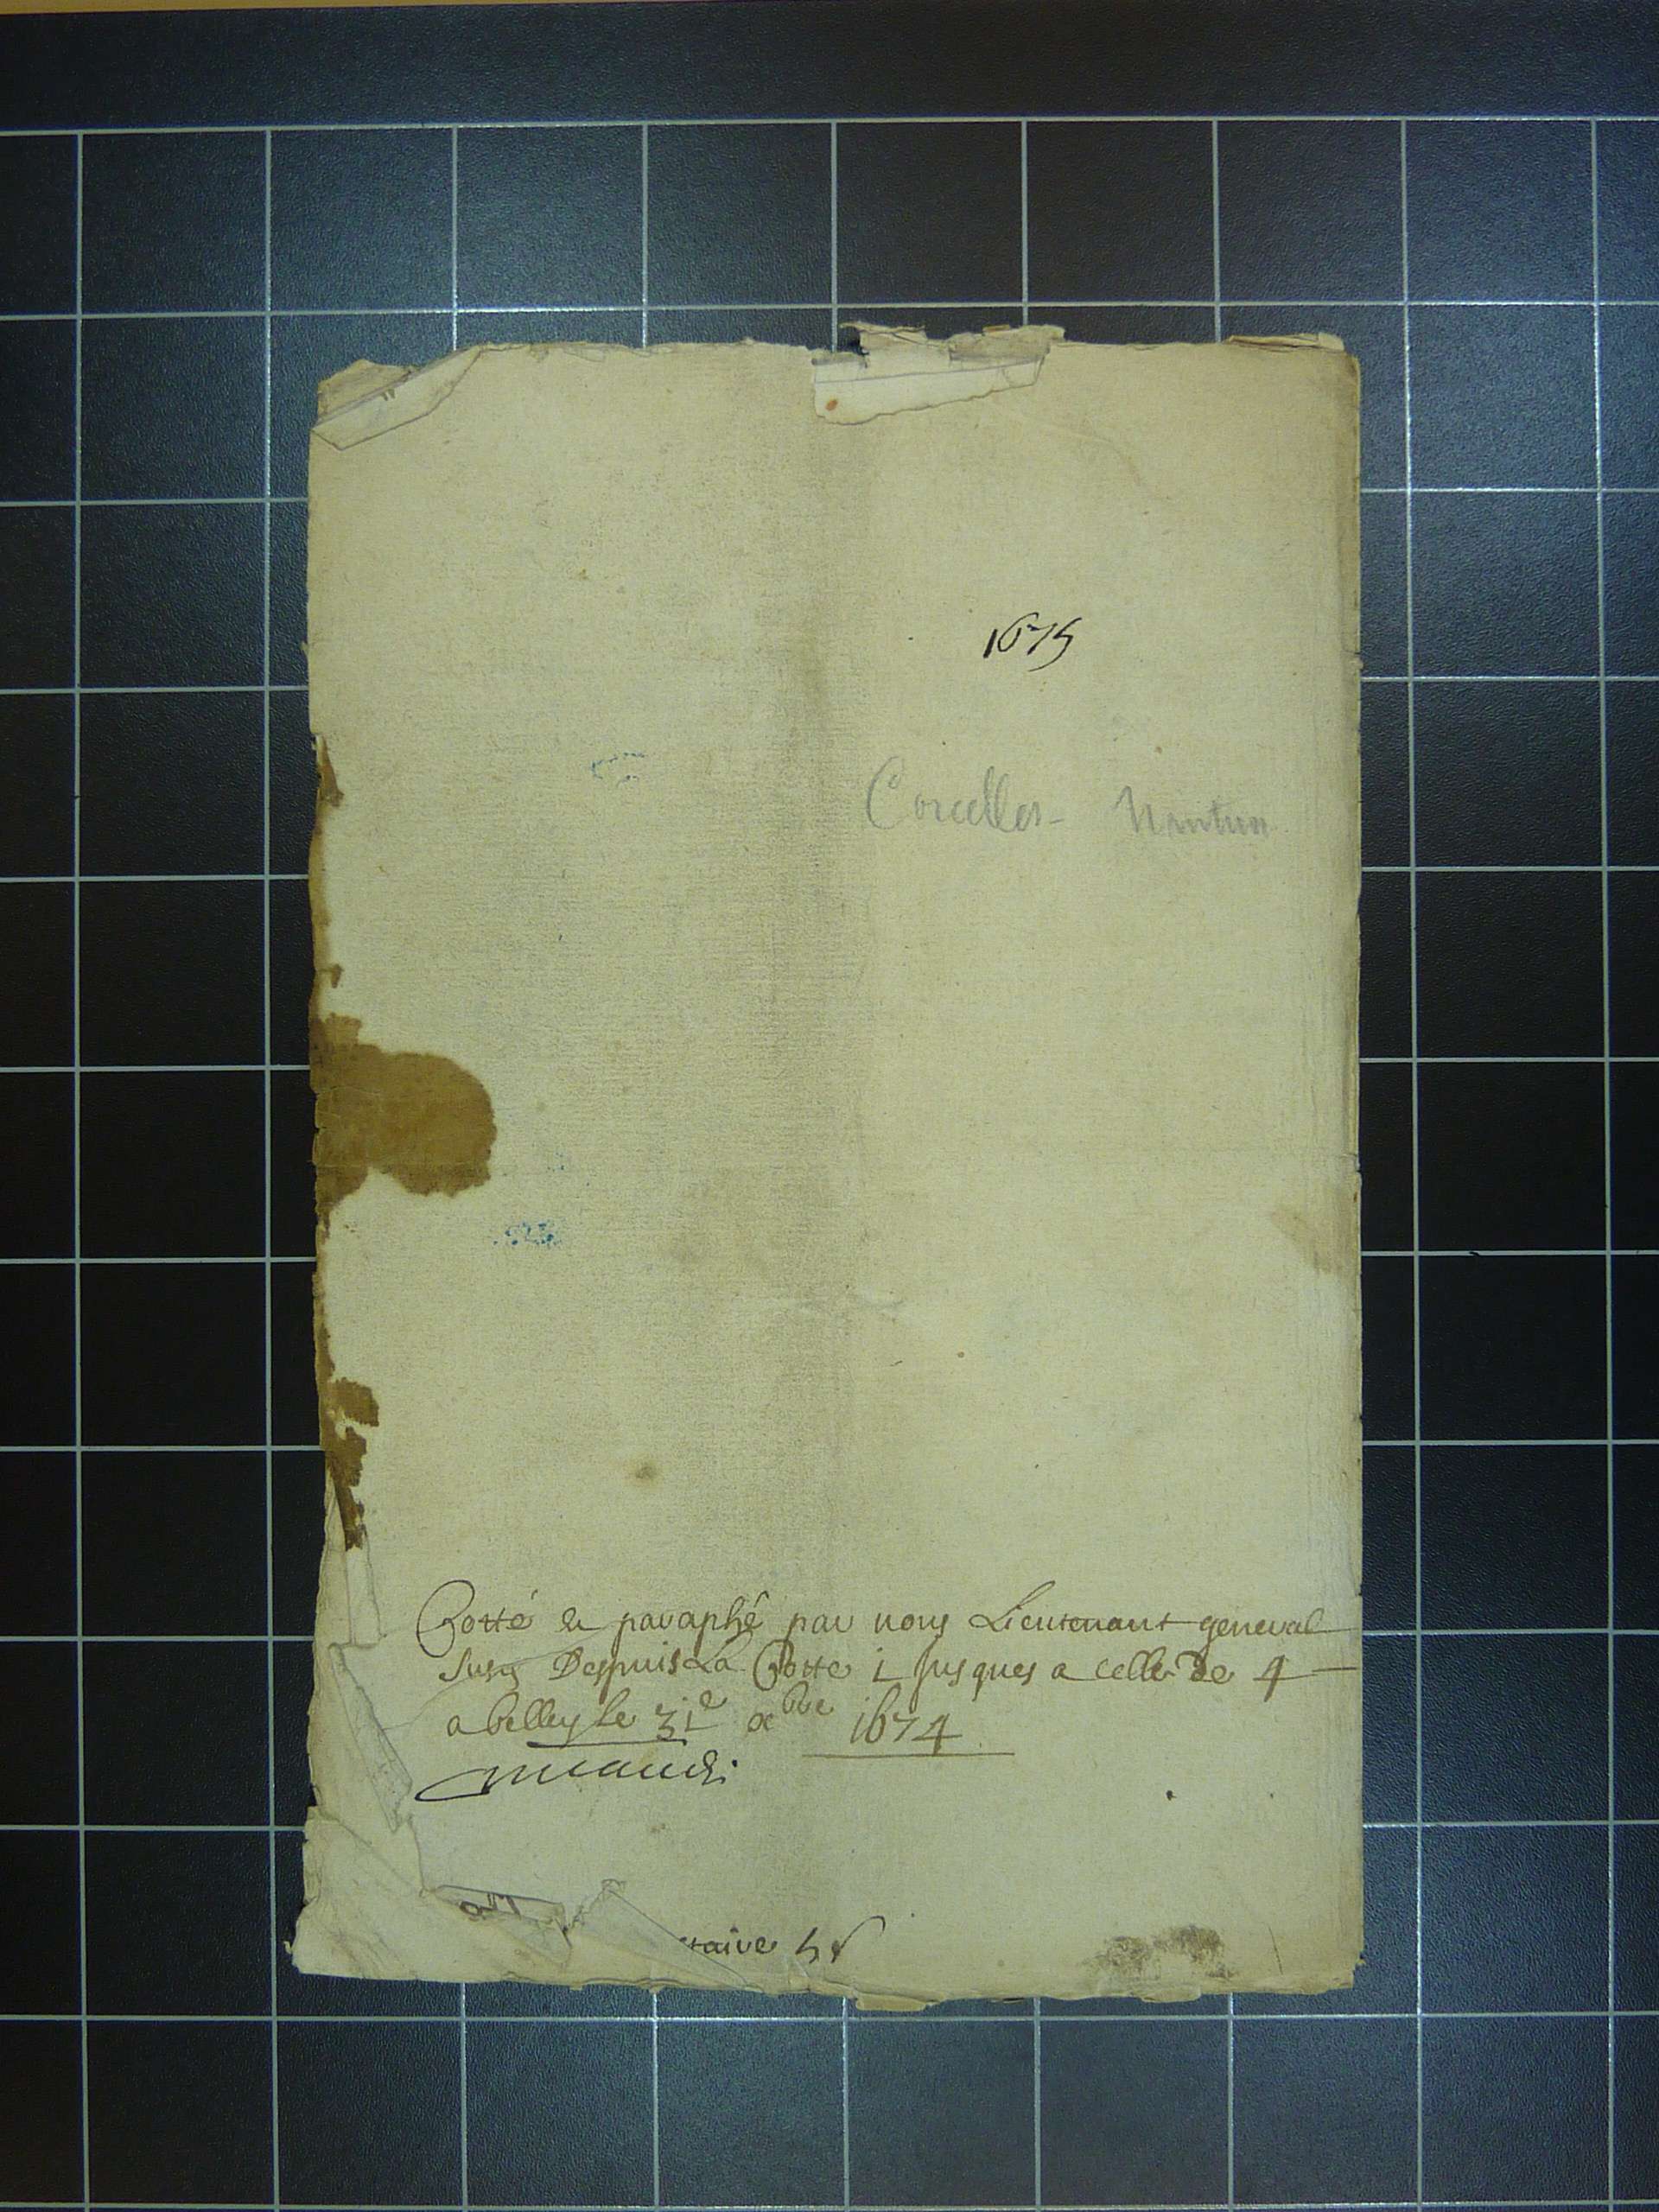 1675
Corcelles - Nantua
Cotté & paraphé par nous Lieutenant general
Jusq Despuis La Cotte i Jusques a celle de 4
a belley le 31e xbre 1674